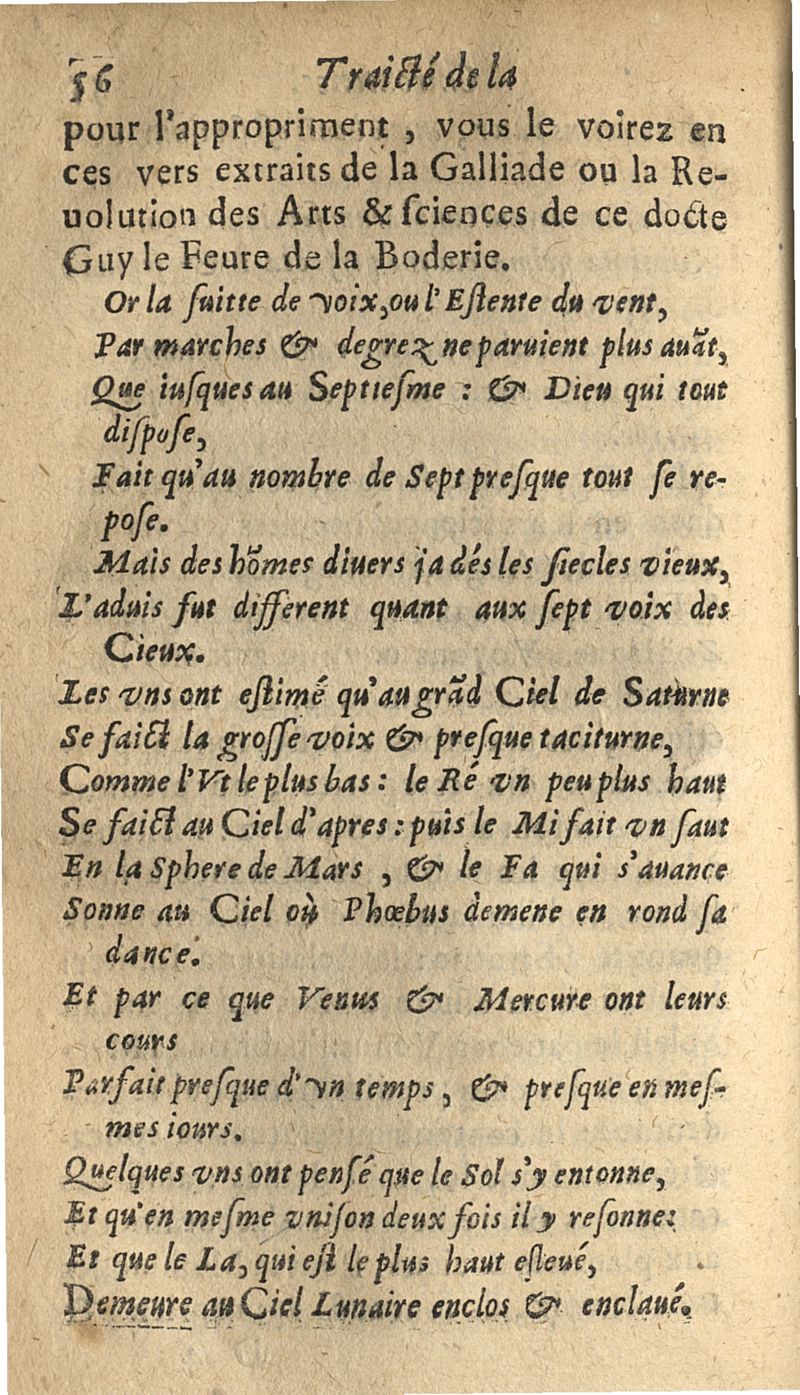 56 Traicté de la
pour l'appropriment , vous le voirez en
ces vers extraits de la Galliade ou la Re-
uolution des Arts & sciences de ce docte
Guy le Feure de la Boderie.
Or la suitte de voix, ou l'Estente du vent,
Par marches & degrez ne paruient plus auãt,
Que iusques au Septiesme : & Dieu qui tout
dispose,
Fait qu'au nombre de Sept presque tout se re-
pose.
Mais des hõmes diuers ja dés les siecles vieux,
L'aduis fut different quant aux sept voix des
Cieux.
Les vns ont estimé qu'au grãd Ciel de Saturne
Se faict la grosse voix & presque taciturne,
Comme l'Vt le plus bas : le Ré vn peu plus haut
Se faict au Ciel d'apres : puis le Mi fait vn saut
En la Sphere de Mars , & le Fa qui s'auance
Sonne au Ciel où Phœbus demene en rond sa
dance.
Et par ce que Venus & Mercure ont leurs
cours
Parfait presque d'vn temps , & presque en mes-
mes iours.
Quelques vns ont pensé que le Sol s'y entonne,
Et qu'en mesme vnison deux fois il y resonne:
Et que le La, qui est le plus haut esleué,
Demeure au Ciel Lunaire enclos & enclaué.